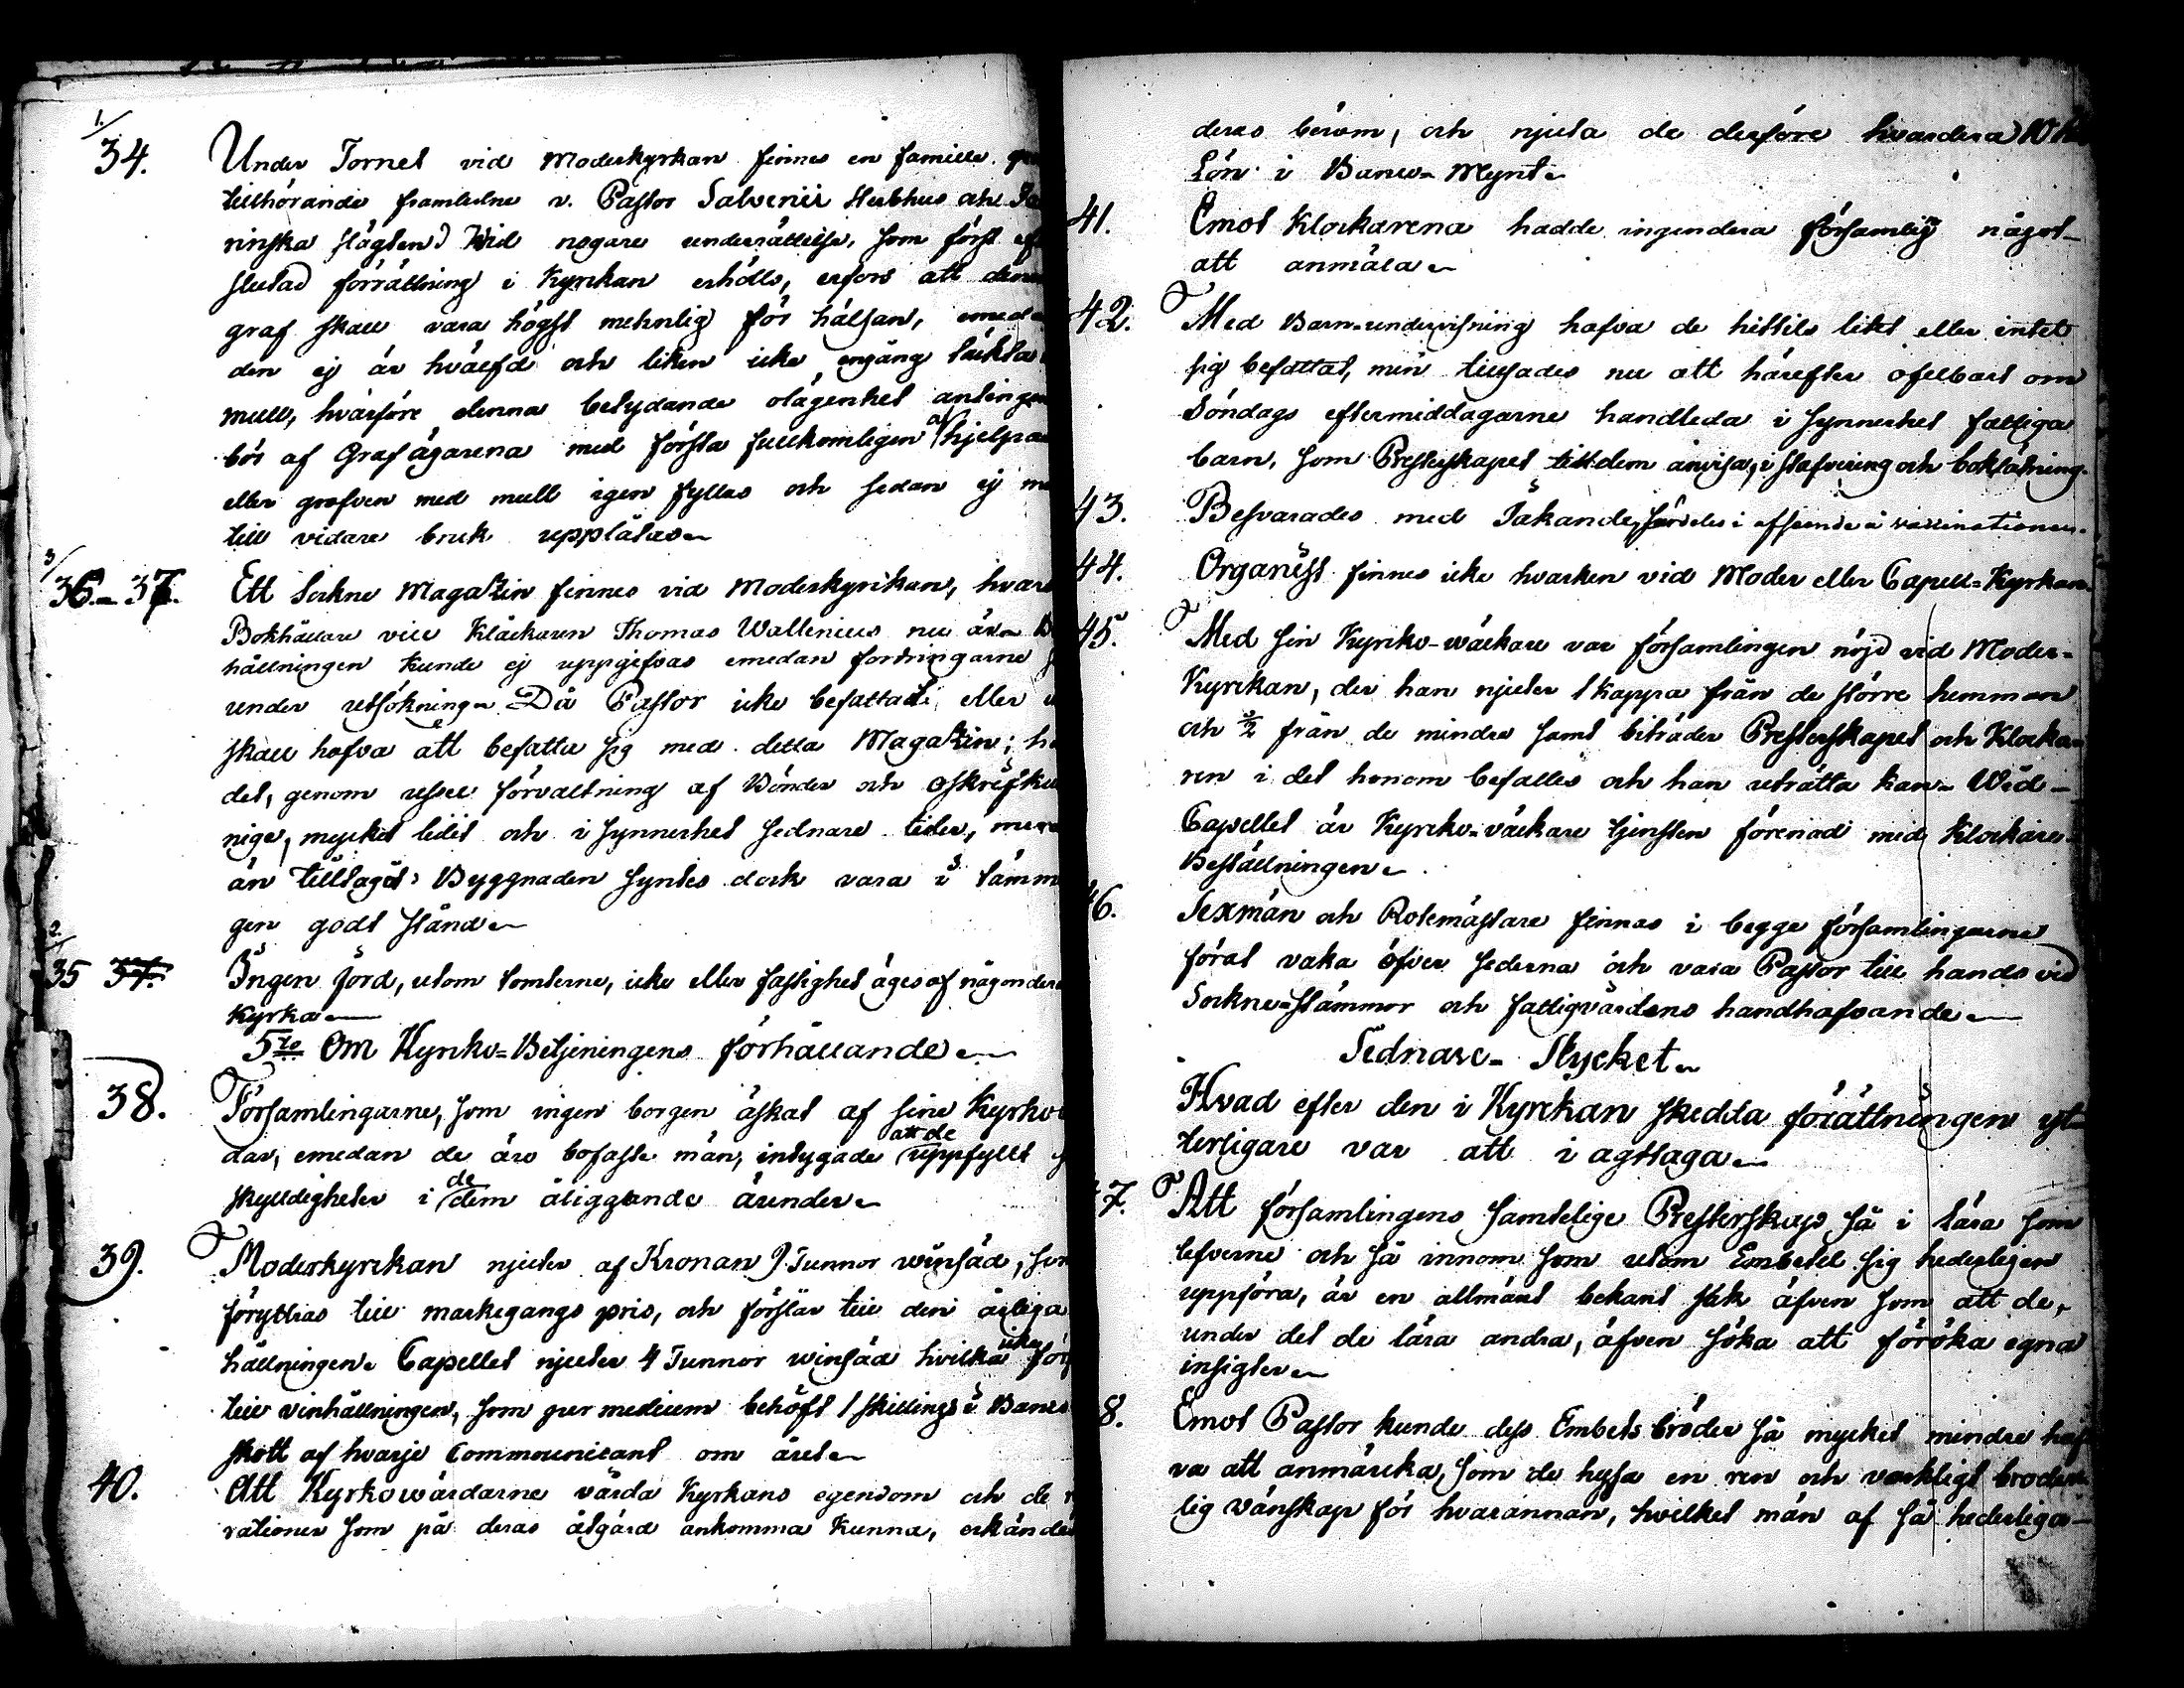 1./
34. Under Tornet vid Moderkyrkan finnes en famille
tillhörande framledne v. Pastor Salvenii Sterbhus och
ninska slägten) Wid nogare underrättelse, som först
slutad förrättning i Kyrkan erhölls, erfors att
graf skall vara högst mehnlig för hälsan,
den ej är hvälfd och liken icke engång täckta
mull, hvarföre denna betydande olägenhet
bör af Grafägarena med första fullkomligen afhjelpas
eller grafven med mull igen fyllas och sedan ej
till vidare bruk upplåtas
3/
36.-37. Ett Sockne Magazin finnes vid Moderkyrkan,
Bokhållare vice Klåckaren Thomas Wallenius nu är
hållningen kunde ej uppgifvas emedan fordringarne
under utsökning. Då Pastor icke befattadt eller
skall hafva att befatta sig med detta Magazin;
det, genom ussel förvaltning af Bönder och oskrifku
nige, mycket lidit och i synnerhet sednare tider,
än tilltagit. Byggnaden syntes dock vara i
gen godt stånd
2.
35 37. Ingen jord, utom tomterne, icke eller fastighet äges af någondera
Kyrka
5to Om Kyrko-Betjeningens förhållande
38. Församlingarne, som ingen borgen äskat af sine
dar, emedan de äro bofaste män, intygade att de uppfyllt
skylldigheter i de dem åliggande ärender
39. Moderkyrkan njuter af Kronan 9 Tunnor winsäd,
föryttras till markegangs pris, och förslår till den årliga
hållningen. Capellet njuter 4 Tunnor winsäd hvilka icke
till vinhållningen, som per medium behöft 1 skillings i
skott af hvarje Communicant om året
40. Att Kyrkowärdarne vårda Kyrkans egendom och de
rationer som på deras åtgärd ankomma kunna,
deras beröm, och njuta de derföre hvardera 10
Lön i Banco-Mynt
41. Emot Klockarena hadde ingendera församling något
att anmäla
42. Med Barn-undervisning hafva de hittils litet eller intet
sig befattat, men tillsades nu att härefter ofelbart om
Söndags eftermiddagarne handleda i synnerhet fattiga
barn, som Presterskapet till dem anvisa, i stafvering och bokläsning.
43. Besvarades med Jakande, särdeles i afseende å vaccinationen.
44. Organist finnes icke hvarken vid Moder eller Capell-Kyrkan
45. Med sin Kyrko-wäckare var församlingen nöjd vid Moder-
Kyrkan, der han njuter 1 kappa från de större hemman
och ½ från de mindre samt biträder Presterskapet och Klocka-
ren i det honom befalles och han uträtta kan. Wid
Capellet är Kyrko-väckare tjensten förenad med Klockare-
Beställningen
46. Sexmän och Rotemästare finnas i begge församlingarne
förat vaka öfver sederna och vara Pastor till hands vid
Sockne-stämmor och fattigvårdens handhafvande
Sednare Stycket
Hvad efter den i Kyrkan skedda förättningen yt-
terligare var att i agttaga
47. Att församlingens samtelige Presterskap så i lära som
lefverne och så innom som utom Embetet sig hederligen
uppföra, är en allmänt bekant sak äfven som att de,
under det de lära andra, äfven söka att föröka egna
insigter
8. Emot Pastor kunde dess Embets bröder så mycket mindre haf-
va att anmärcka, som de hysa en ren och verkligt broder-
lig Wänskap för hvarannan, hvilket män af så hederliga